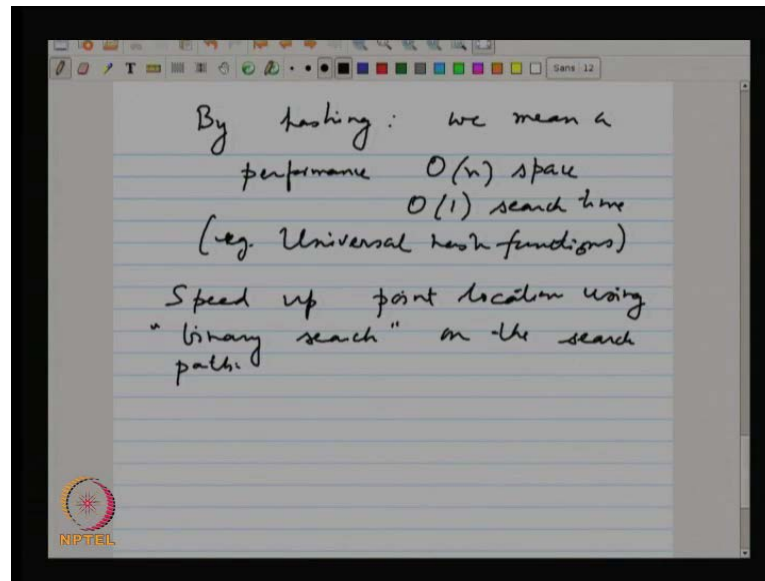 Sans 12
By hashing : we mean a
performance O(n) space
O(1) search time
(eg. Universal hash functions)
Speed up point location using
"binary search" on the search
path.
NPTEL